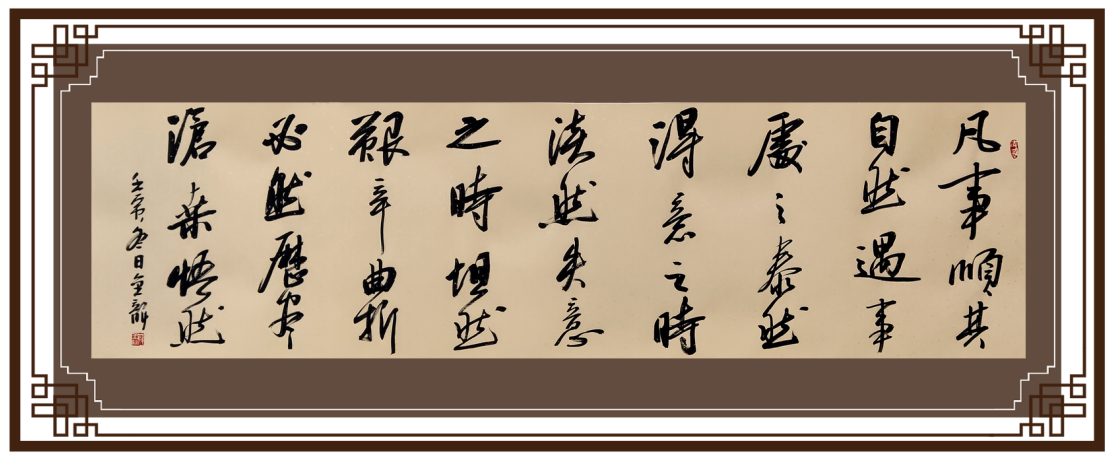 凡事順其
自然遇事
處之泰然
得意之時
淡然失意
之時坦然
艱辛曲折
必然歷尽
滄桑悟然
壬寅冬日